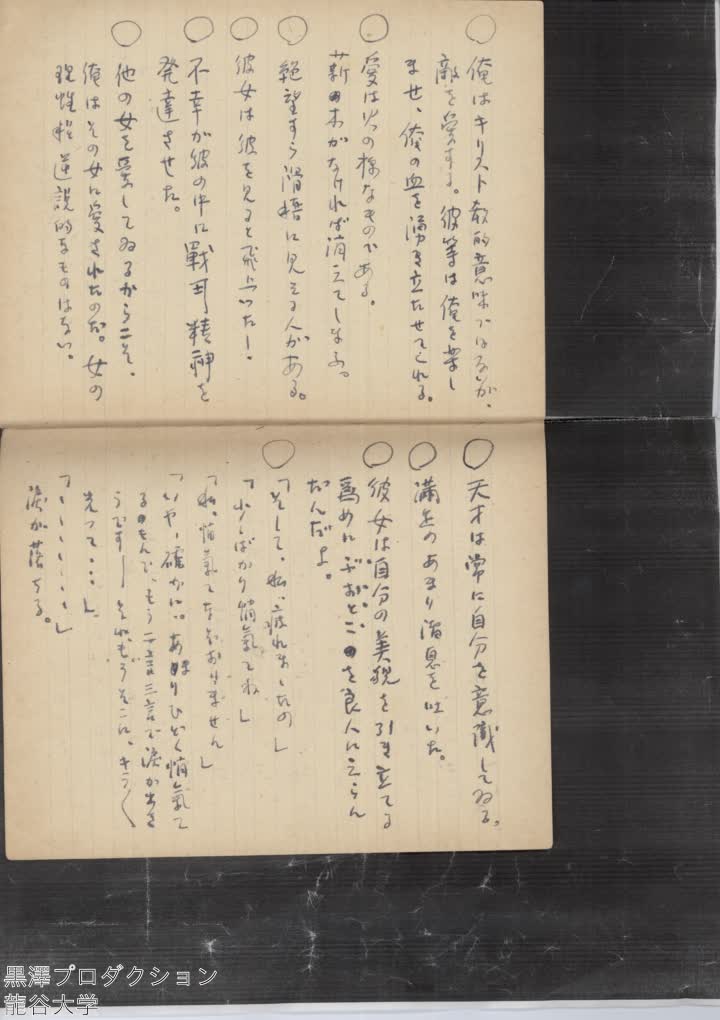 ○ 俺はキリスト教的意味ではないが、
敵を愛する。彼等は俺を楽し
ませ、俺の血を湧き立たせてくれる。
○ 愛は火の様なものである。
薪の木がなければ消えてしまふ。
○ 絶望すら滑稽に見える人がある。
○ 彼女は彼を見ると飛上った!
○ 不幸が彼の中に戰斗精神を
発達させた。
○ 他の女を愛してゐるからこそ、
俺はその女に愛されたのだ。女の
理性程逆説的なものはない。
○ 天才は常に自分を意識してゐる。
○ 満足のあまり溜息を吐いた。
○ 彼女は自分の美貌を引き立てる
爲めにぶおとこのを良人にえらん
だんだよ。
○ 「そして、私、疲れましたの」
「少しばかり悄氣てね」
「私、悄氣てなどおりません」
「いや、確かに。あまりひどく悄氣て
るもんで、もう二言三言で涙が出さ
うです! それもうそこに、キラ〱
光って・・・」
「・・・・・・・」
涙が落ちる。
黒澤プロダクション
龍谷大学